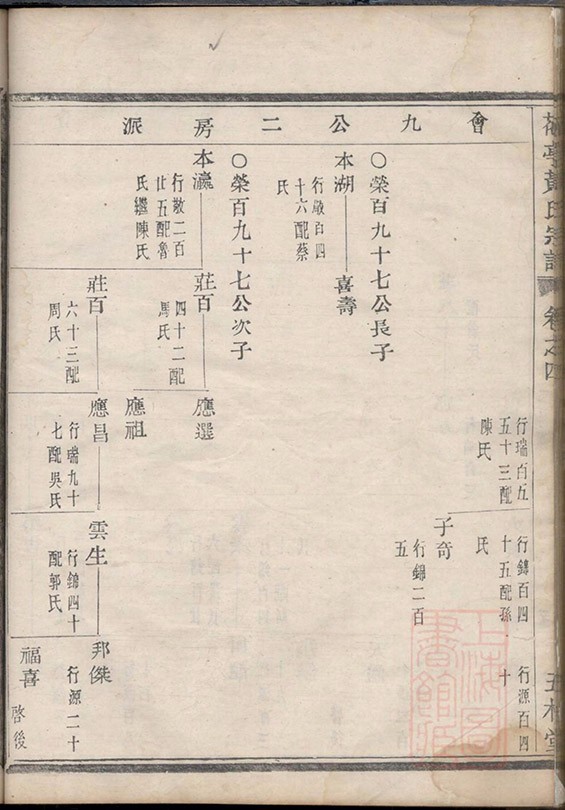 黃氏宗譜 卷之四
會九公二房派
行瑞百五
五十三配
陳氏
行錦百四
十五配孫
氏
行源百四
十
子奇
行錦二百
五
○榮百九十七公長子
本湖
行敬百四
十六配蔡
氏
喜壽
○榮百九十七公次子
本瀛
行敬二百
廿五配魯
氏繼陳氏
莊百
四十二配
馬氏
應選
應祖
莊百
六十三配
周氏
應昌
行瑞九十
七配吳氏
雲生
行錦四十
配郭氏
邦傑
行源二十
福喜
啓後
上海圖書館藏